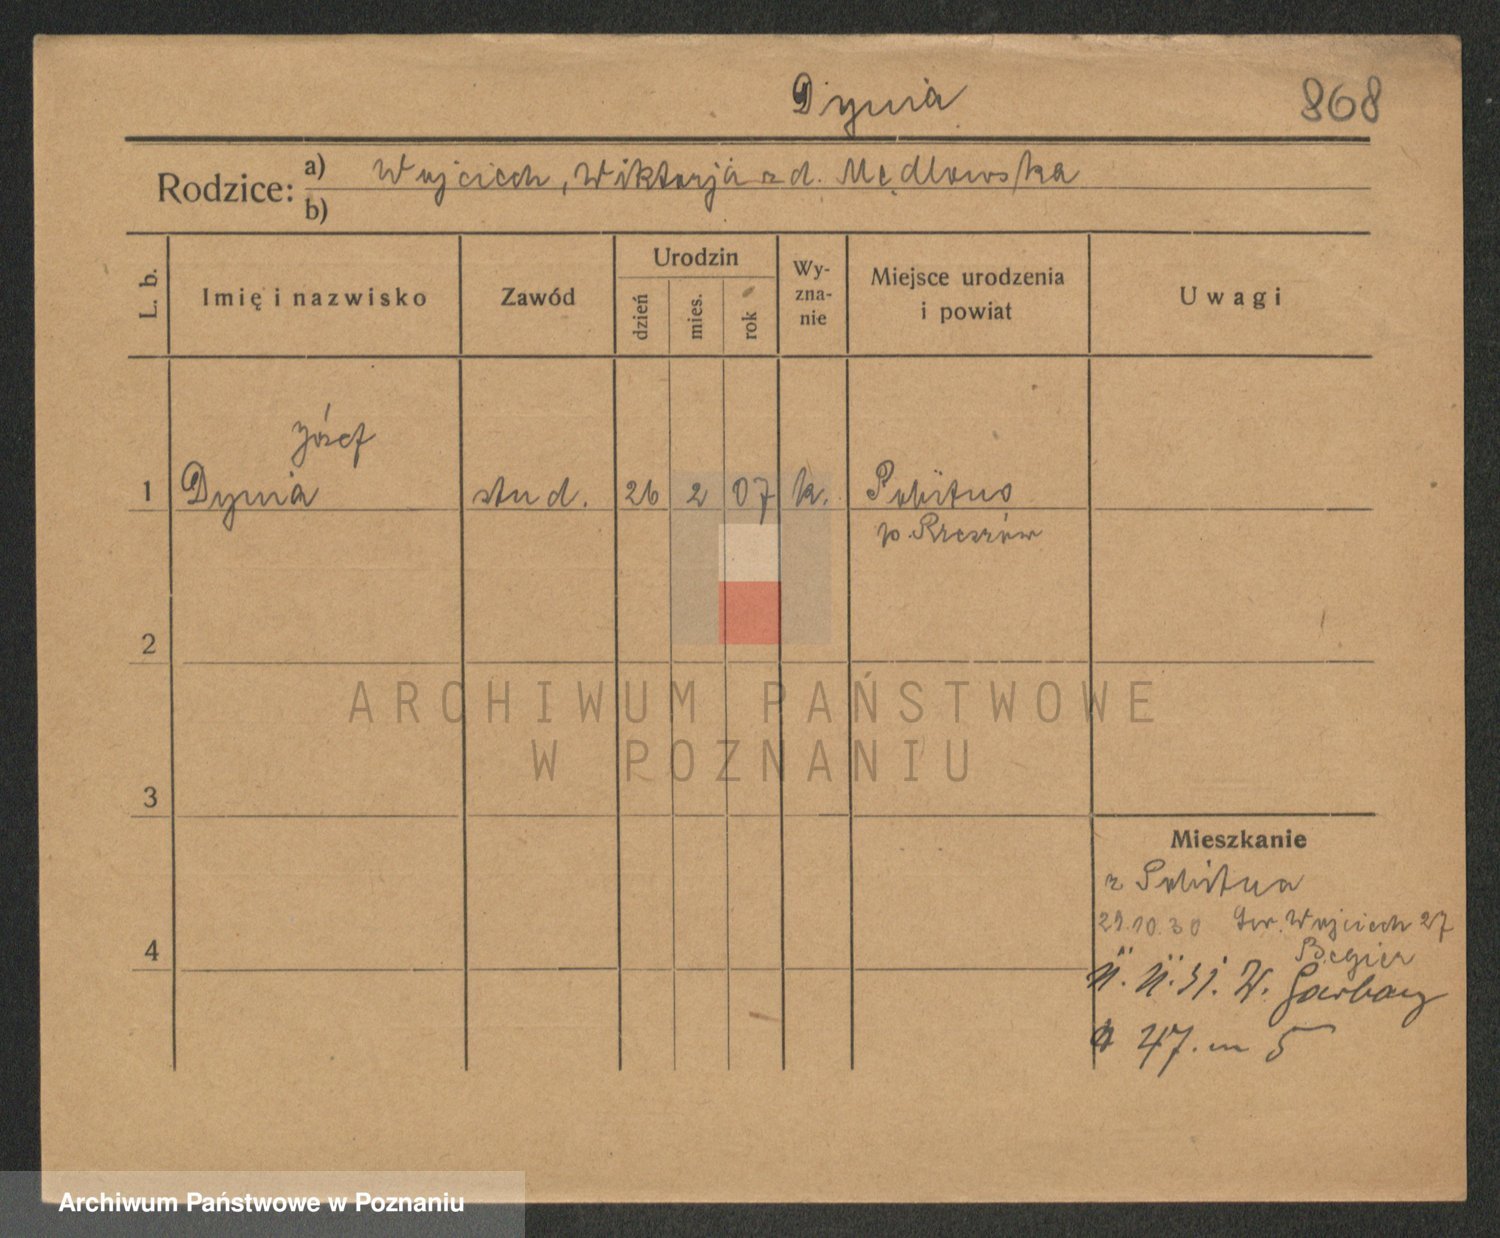 Dynia
868
Rodzice:
a) Wojciech, Wiktorja z d. Mędlowska
b)
L. b.
Imię i nazwisko
Zawód
Urodzin
dzień
mies.
rok
Wy-
zna-
nie
Miejsce urodzenia
i powiat
Uwagi
Józef
1 Dynia stud. 26 2 07 k. Pobitno
p. Rzeszów
2
ARCHIWUM PAŃSTWOWE
W POZNANIU
3
Mieszkanie
z Pobitna
29.10.30 Św. Wojciech 27
Begier
4
11. 11. 31. W. Garbary
47. m 5
Archiwum Państwowe w Poznaniu